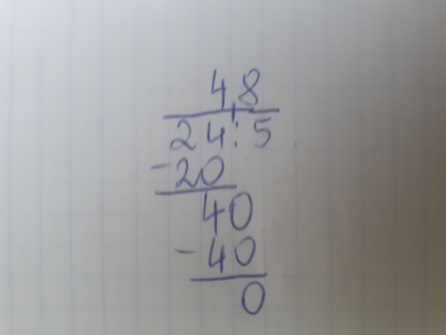 4,8
24:5
-20
40
-40
0